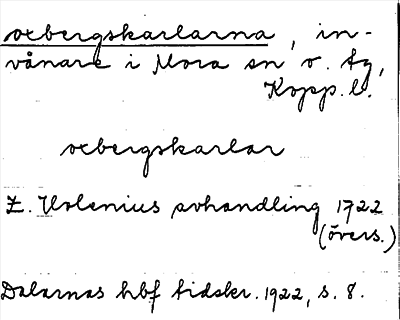 oxbergskarlarna, in-
vånare i Mora sn o. tg,
Kopp. l.
oxbergskarlar
E. Holenius avhandling 1722
(övers.)
Dalarnas hbf tidskr. 1922, s. 8.